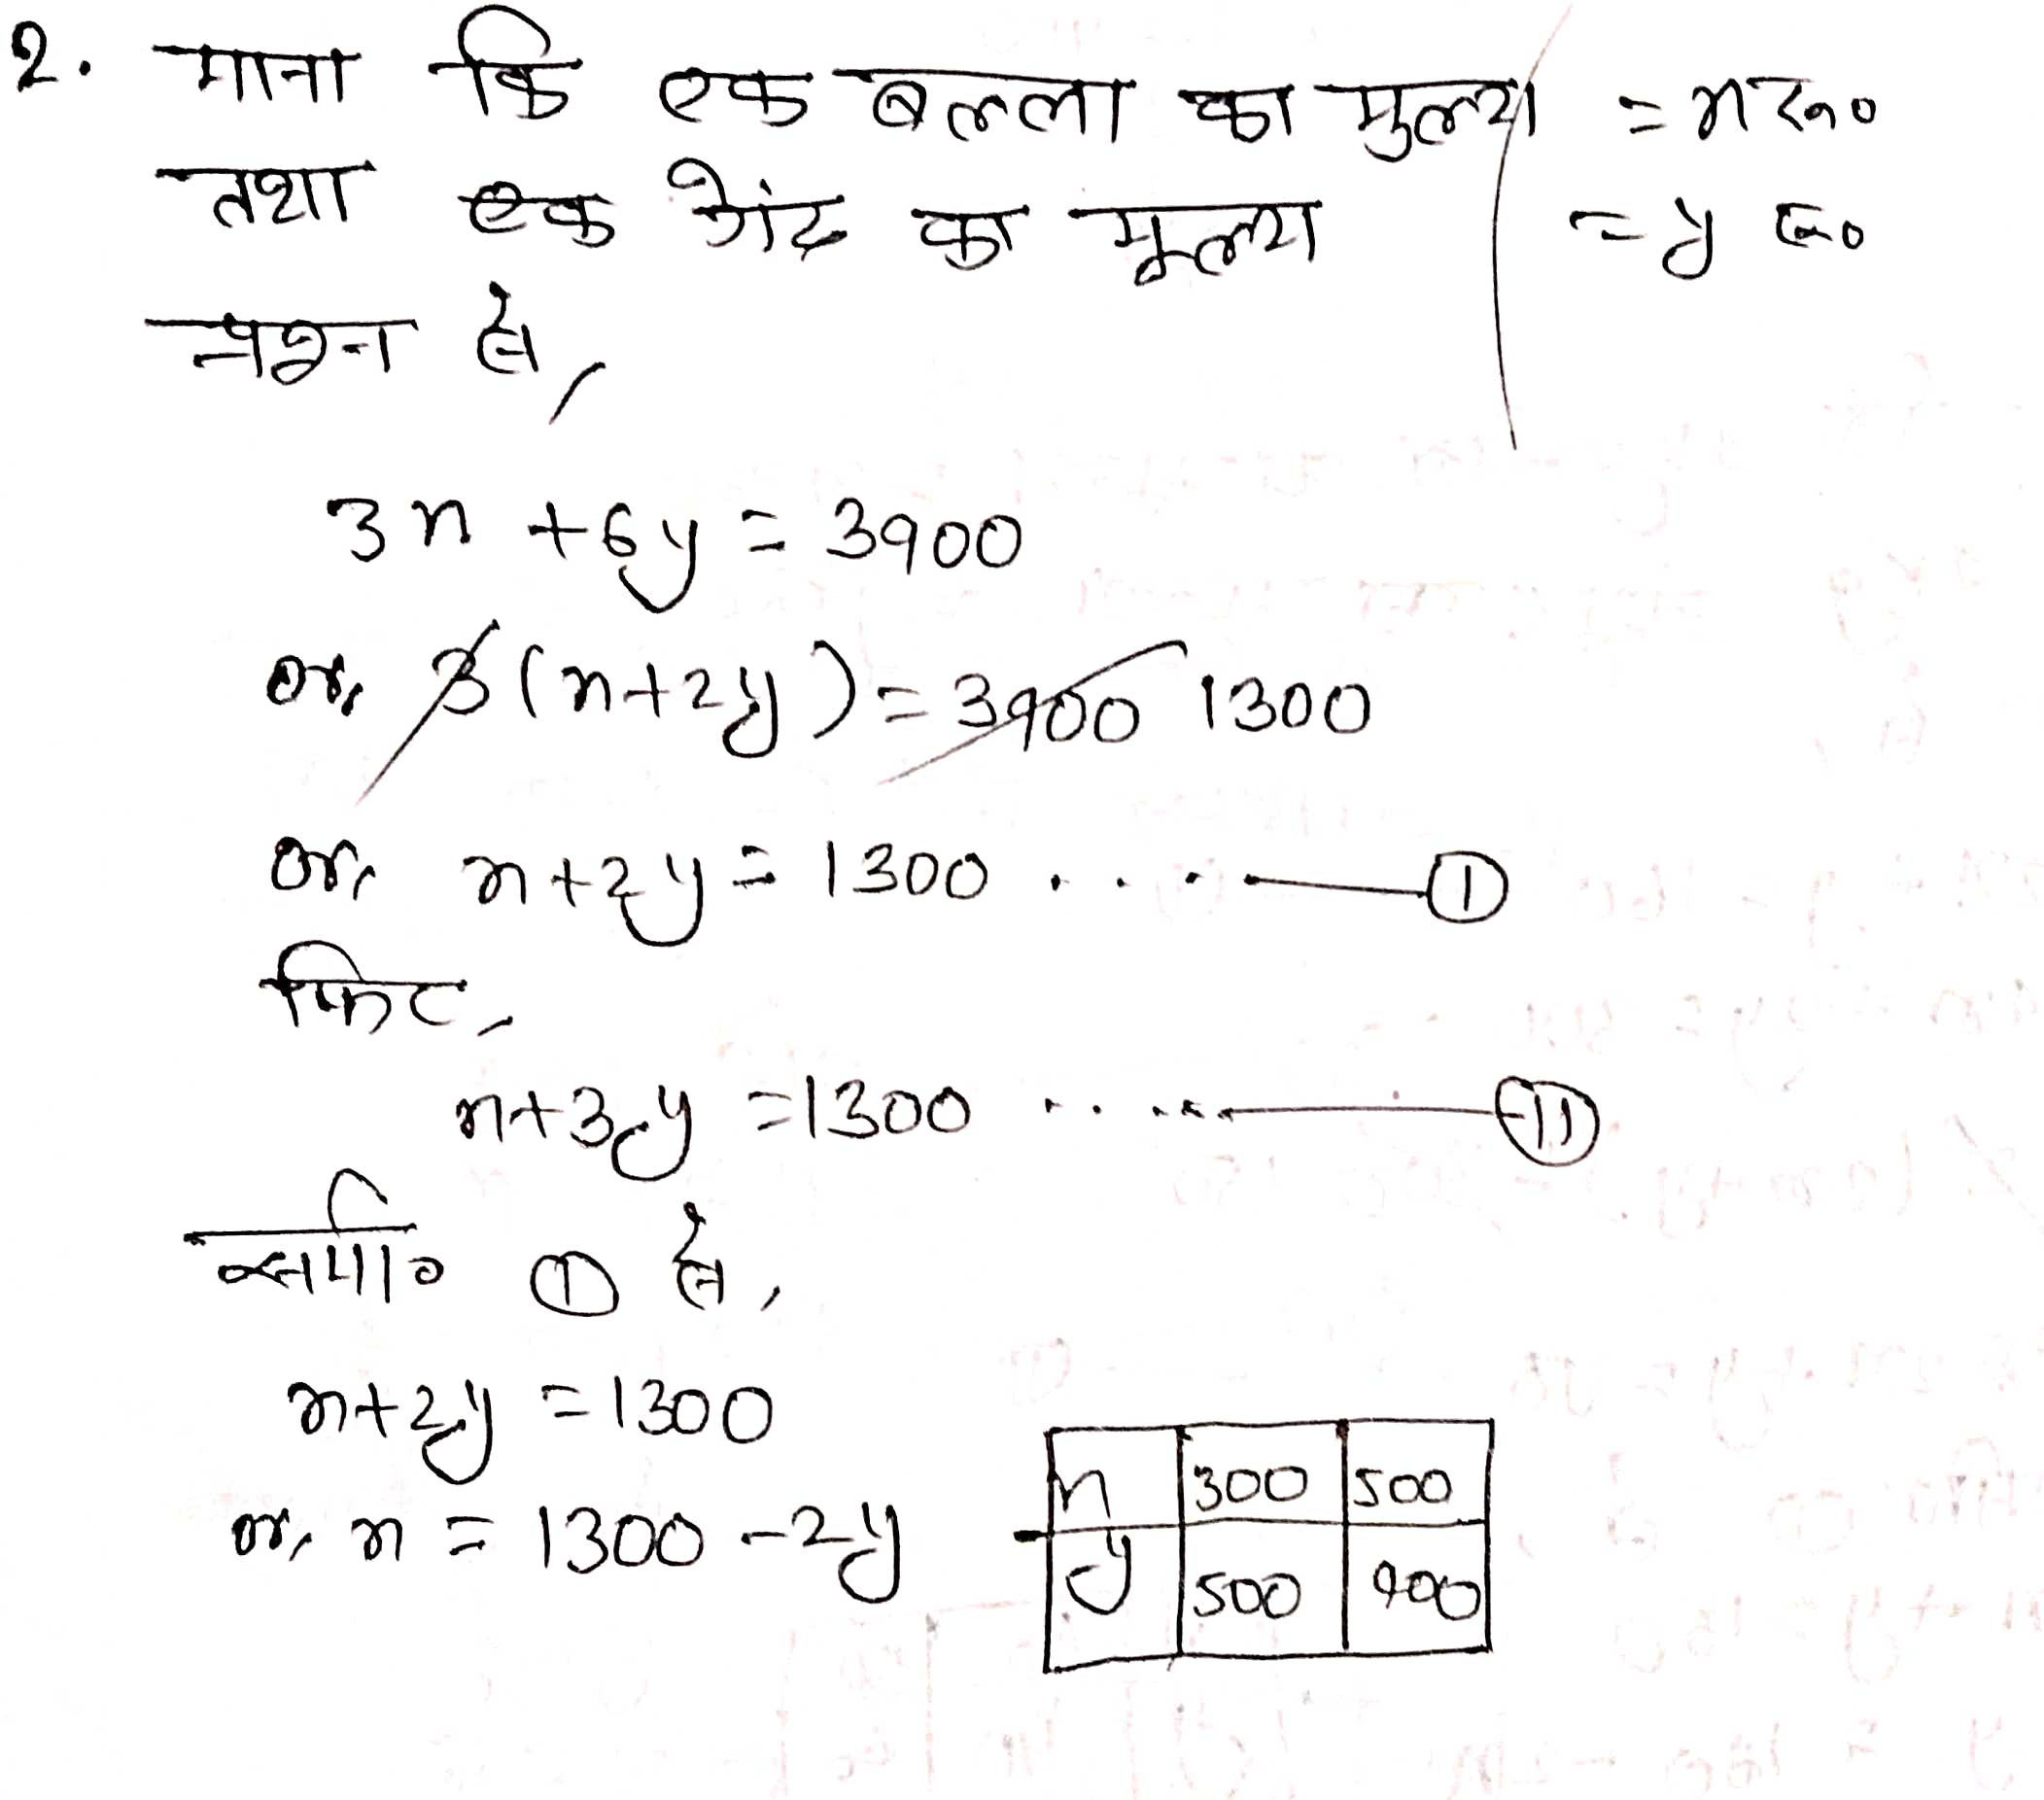 2. माना कि एक बल्ला का मुल्य = x रू०
तथा एक गेंद का मूल्य = y रू०
प्रश्न से,
3x + 6y = 3900
or, 3(x+2y) = 3900 1300
or, x+2y = 1300 .... ①
फिर,
x+3y = 1300 ..... ⑪
समी० ① से,
x+2y = 1300
or, x = 1300 - 2y
x 300 500
y 500 400